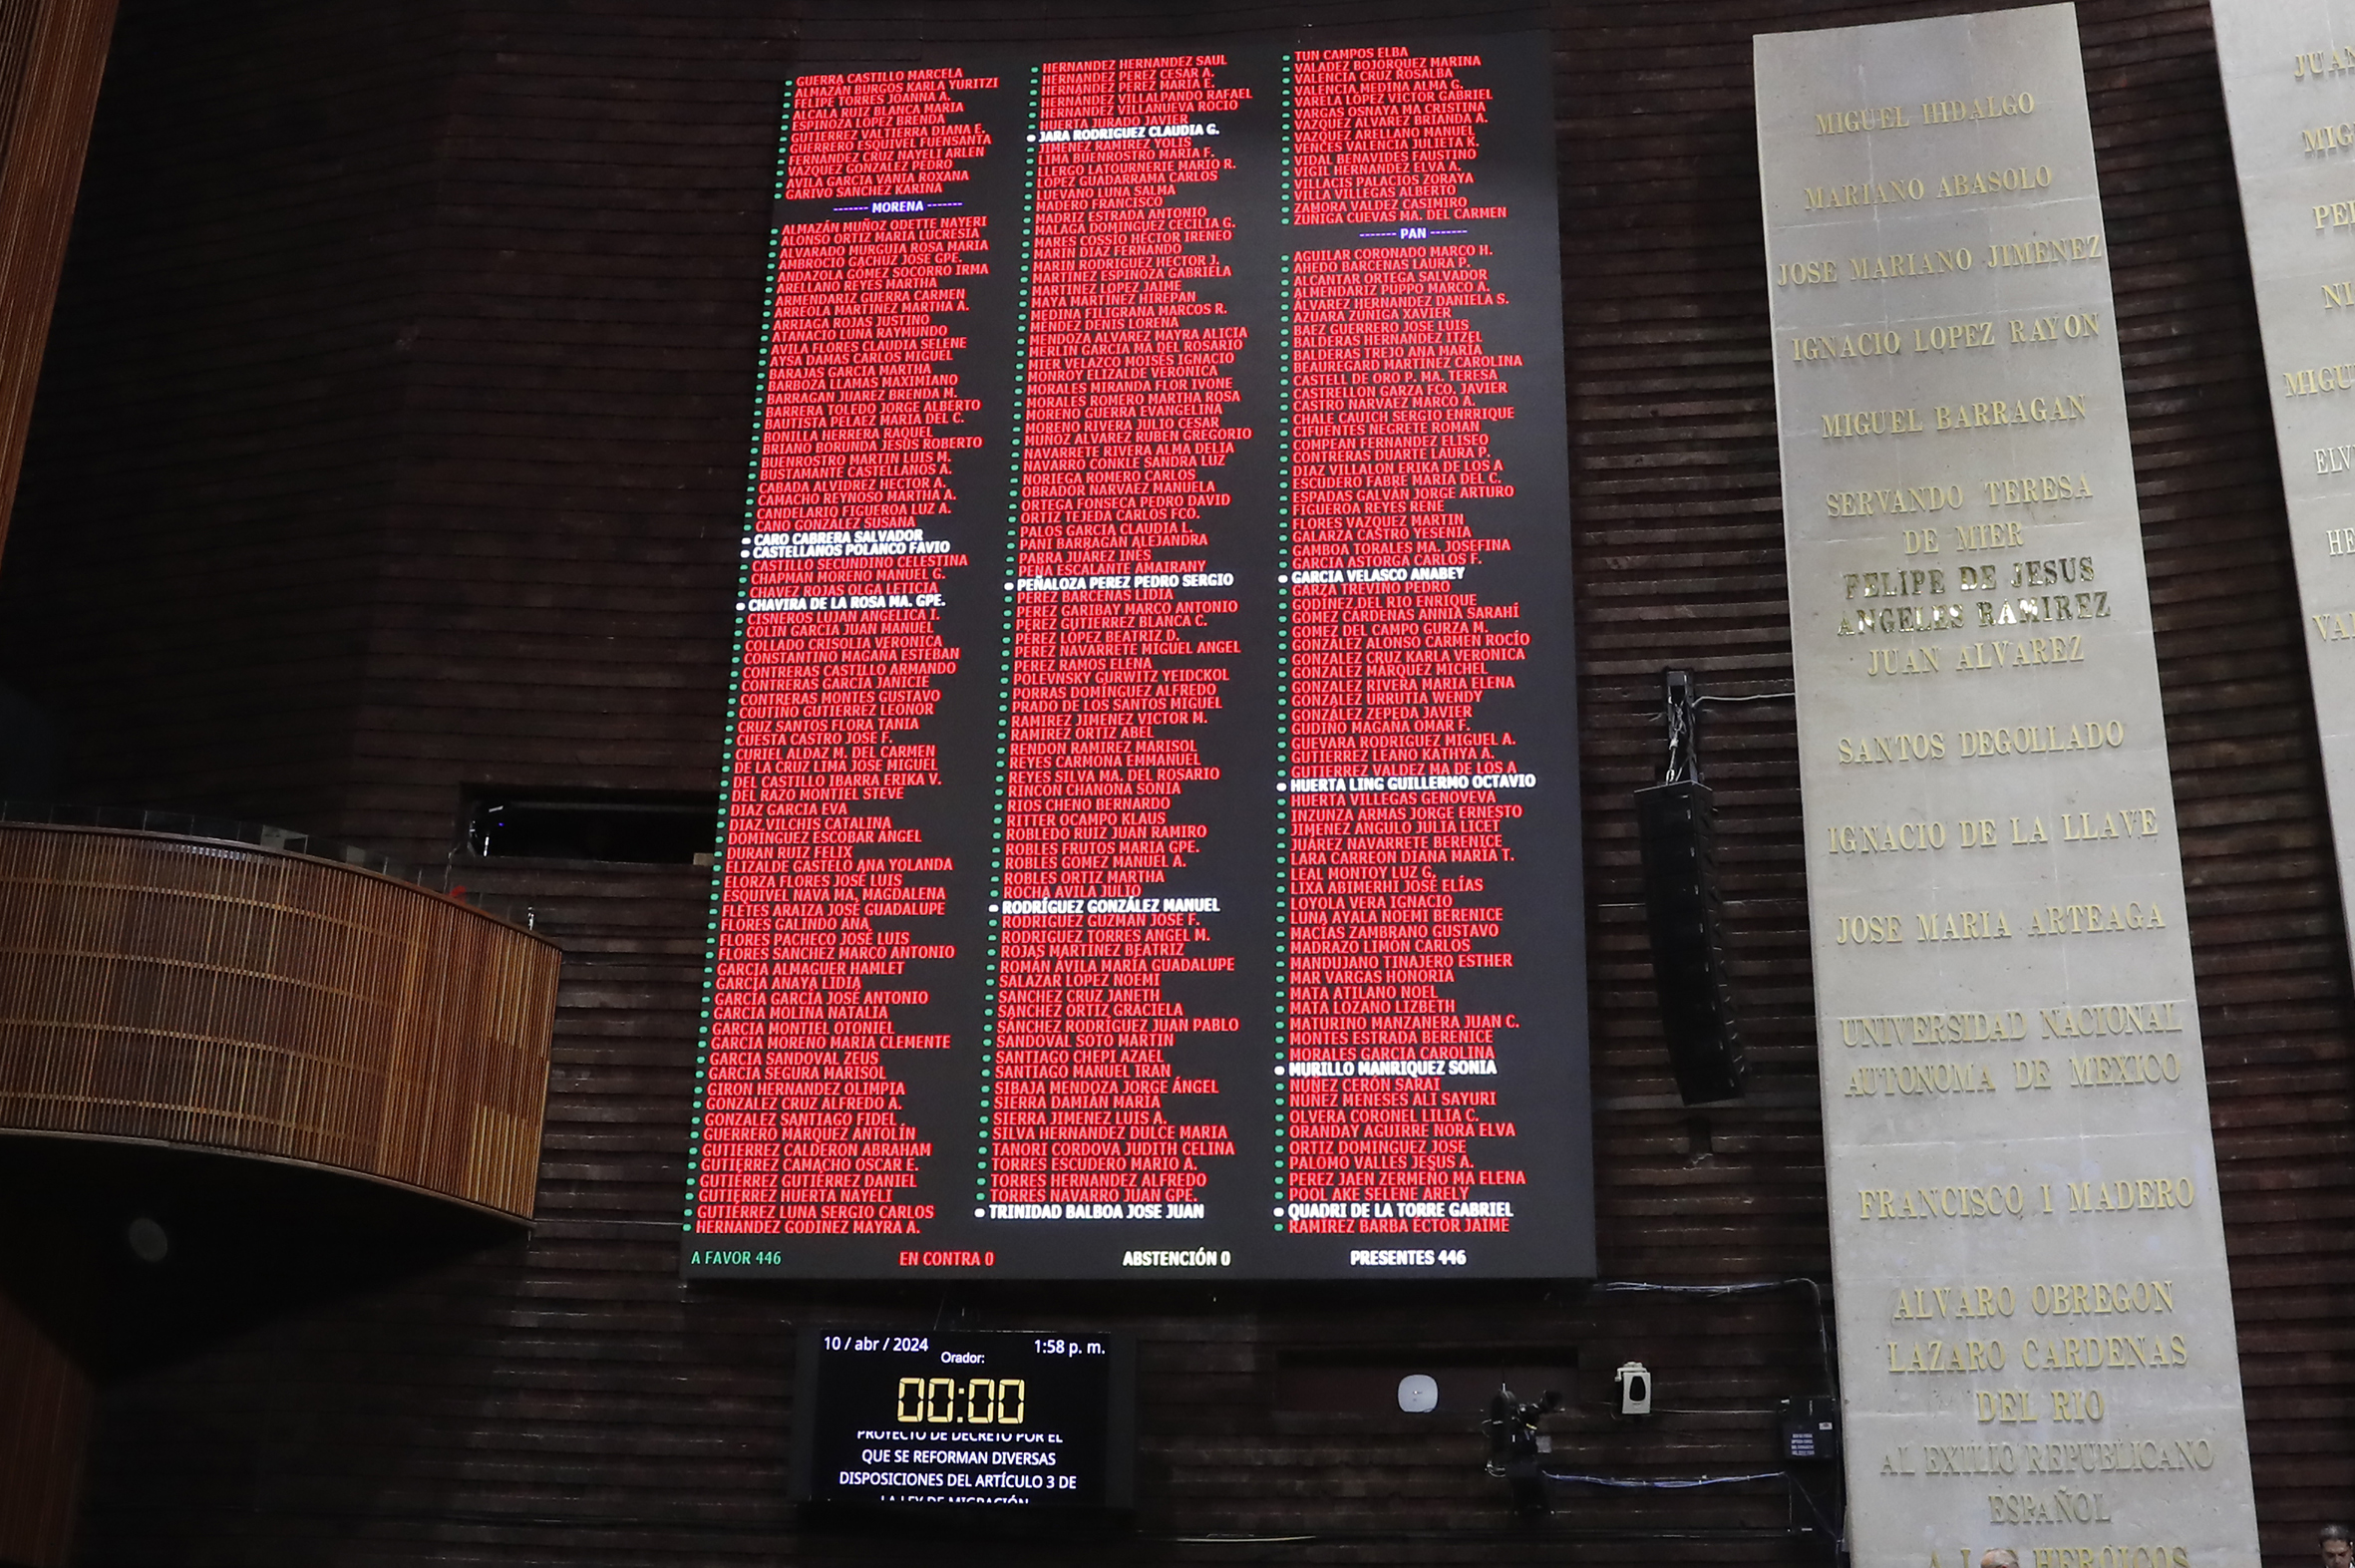 GUERRA CASTILLO MARCELA
ALMAZÁN BURGOS KARLA YURITZI
FELIPE TORRES JOANNA A.
ALCALA RUIZ BLANCA MARIA
ESPINOZA LOPEZ BRENDA
GUTIERREZ VALTIERRA DIANA E.
GUERRERO ESQUIVEL FUENSANTA
FERNÁNDEZ CRUZ NAYELI ARLEN
VAZQUEZ GONZALEZ PEDRO
AVILA GARCIA VANIA ROXANA
GARIVO SANCHEZ KARINA
------- MORENA -------
ALMAZÁN MUÑOZ ODETTE NAYERI
ALONSO ORTIZ MARIA LUCRESIA
ALVARADO MURGUIA ROSA MARIA
AMBROCIO GACHUZ JOSE GPE.
ANDAZOLA GÓMEZ SOCORRO IRMA
ARELLANO REYES MARTHA
ARMENDARIZ GUERRA CARMEN
ARREOLA MARTINEZ MARTHA A.
ARRIAGA ROJAS JUSTINO
ATANACIO LUNA RAYMUNDO
AVILA FLORES CLAUDIA SELENE
AYSA DAMAS CARLOS MIGUEL
BARAJAS GARCIA MARTHA
BARBOZA LLAMAS MAXIMIANO
BARRAGAN JUAREZ BRENDA M.
BARRERA TOLEDO JORGE ALBERTO
BAUTISTA PELAEZ MARIA DEL C.
BONILLA HERRERA RAQUEL
BRIANO BORUNDA JESÚS ROBERTO
BUENROSTRO MARTIN LUIS M.
BUSTAMANTE CASTELLANOS A.
CABADA ALVIDREZ HECTOR A.
CAMACHO REYNOSO MARTHA A.
CANDELARIO FIGUEROA LUZ A.
CANO GONZÁLEZ SUSANA
CARO CABRERA SALVADOR
CASTELLANOS POLANCO FAVIO
CASTILLO SECUNDINO CELESTINA
CHAPMAN MORENO MANUEL G.
CHAVEZ ROJAS OLGA LETICIA
CHAVIRA DE LA ROSA MA. GPE.
CISNEROS LUJAN ANGELICA I.
COLIN GARCIA JUAN MANUEL
COLLADO CRISOLIA VERONICA
CONSTANTINO MAGAÑA ESTEBAN
CONTRERAS CASTILLO ARMANDO
CONTRERAS GARCIA JANICIE
CONTRERAS MONTES GUSTAVO
COUTIÑO GUTIERREZ LEONOR
CRUZ SANTOS FLORA TANIA
CUESTA CASTRO JOSE F.
CURIEL ALDAZ M. DEL CARMEN
DE LA CRUZ LIMA JOSE MIGUEL
DEL CASTILLO IBARRA ERIKA V.
DEL RAZO MONTIEL STEVE
DIAZ GARCIA EVA
DIAZ VILCHIS CATALINA
DOMINGUEZ ESCOBAR ANGEL
DURAN RUIZ FELIX
ELIZALDE GASTELO ANA YOLANDA
ELORZA FLORES JOSÉ LUIS
ESQUIVEL NAVA MA. MAGDALENA
FLETES ARAIZA JOSÉ GUADALUPE
FLORES GALINDO ANA
FLORES PACHECO JOSÉ LUIS
FLORES SANCHEZ MARCO ANTONIO
GARCIA ALMAGUER HAMLET
GARCÍA ANAYA LIDIA
GARCÍA GARCÍA JOSÉ ANTONIO
GARCIA MOLINA NATALIA
GARCIA MONTIEL OTONIEL
GARCIA MORENO MARIA CLEMENTE
GARCIA SANDOVAL ZEUS
GARCIA SEGURA MARISOL
GIRON HERNANDEZ OLIMPIA
GONZALEZ CRUZ ALFREDO A.
GONZALEZ SANTIAGO FIDEL
GUERRERO MARQUEZ ANTOLIN
GUTIERREZ CALDERON ABRAHAM
GUTIÉRREZ CAMACHO OSCAR E.
GUTIÉRREZ GUTIÉRREZ DANIEL
GUTIÉRREZ HUERTA NAYELI
GUTIÉRREZ LUNA SERGIO CARLOS
HERNANDEZ GODINEZ MAYRA A.
HERNANDEZ HERNANDEZ SAUL
HERNANDEZ PEREZ CESAR A.
HERNÁNDEZ PEREZ MARIA E.
HERNÁNDEZ VILLALPANDO RAFAEL
HERNÁNDEZ VILLANUEVA ROCIO
HUERTA JURADO JAVIER
JARA RODRIGUEZ CLAUDIA G.
JIMENEZ RAMIREZ YOLIS
LIMA BUENROSTRO MARIA F.
LLERGO LATOURNERIE MARIO R.
LOPEZ GUADARRAMA CARLOS
LUEVANO LUNA SALMA
MADERO FRANCISCO
MADRIZ ESTRADA ANTONIO
MALAGA DOMINGUEZ CECILIA G.
MARES COSSÍO HÉCTOR IRENEO
MARIN DIAZ FERNANDO
MARIN RODRIGUEZ HECTOR J.
MARTINEZ ESPINOZA GABRIELA
MARTINEZ LOPEZ JAIME
MAYA MARTINEZ HIREPAN
MEDINA FILIGRANA MARCOS R.
MÉNDEZ DENIS LORENA
MENDOZA ALVAREZ MAYRA ALICIA
MERLIN GARCIA MA DEL ROSARIO
MIER VELAZCO MOISES IGNACIO
MONROY ELIZALDE VERONICA
MORALES MIRANDA FLOR IVONE
MORALES ROMERO MARTHA ROSA
MORENO GUERRA EVANGELINA
MORENO RIVERA JULIO CESAR
MUÑOZ ALVAREZ RUBEN GREGORIO
NAVARRETE RIVERA ALMA DELIA
NAVARRO CONKLE SANDRA LUZ
NORIEGA ROMERO CARLOS
OBRADOR NARVAEZ MANUELA
ORTEGA FONSECA PEDRO DAVID
ORTIZ TEJEDA CARLOS FCO.
PALOS GARCIA CLAUDIA L.
PANI BARRAGÁN ALEJANDRA
PARRA JUÁREZ INÉS
PEÑA ESCALANTE AMAIRANY
PEÑALOZA PEREZ PEDRO SERGIO
PEREZ BARCENAS LIDIA
PEREZ GARIBAY MARCO ANTONIO
PEREZ GUTIERREZ BLANCA C.
PÉREZ LÓPEZ BEATRIZ D.
PEREZ NAVARRETE MIGUEL ANGEL
PEREZ RAMOS ELENA
POLEVNSKY GURWITZ YEIDCKOL
PORRAS DOMÍNGUEZ ALFREDO
PRADO DE LOS SANTOS MIGUEL
RAMIREZ JIMENEZ VICTOR M.
RAMIREZ ORTIZ ABEL
RENDON RAMIREZ MARISOL
REYES CARMONA EMMANUEL
REYES SILVA MA. DEL ROSARIO
RINCON CHANONA SONIA
RIOS CHENO BERNARDO
RITTER OCAMPO KLAUS
ROBLEDO RUIZ JUAN RAMIRO
ROBLES FRUTOS MARIA GPE.
ROBLES GOMEZ MANUEL A.
ROBLES ORTIZ MARTHA
ROCHA AVILA JULIO
RODRÍGUEZ GONZÁLEZ MANUEL
RODRIGUEZ GUZMAN JOSE F.
RODRIGUEZ TORRES ANGEL M.
ROJAS MARTINEZ BEATRIZ
ROMÁN ÁVILA MARÍA GUADALUPE
SALAZAR LOPEZ NOEMI
SANCHEZ CRUZ JANETH
SANCHEZ ORTIZ GRACIELA
SÁNCHEZ RODRÍGUEZ JUAN PABLO
SANDOVAL SOTO MARTIN
SANTIAGO CHEPI AZAEL
SANTIAGO MANUEL IRAN
SIBAJA MENDOZA JORGE ÁNGEL
SIERRA DAMIÁN MARÍA
SIERRA JIMENEZ LUIS A.
SILVA HERNANDEZ DULCE MARIA
TANORI CORDOVA JUDITH CELINA
TORRES ESCUDERO MARIO A.
TORRES HERNANDEZ ALFREDO
TORRES NAVARRO JUAN GPE.
TRINIDAD BALBOA JOSE JUAN
TUN CAMPOS ELBA
VALADEZ BOJORQUEZ MARINA
VALENCIA CRUZ ROSALBA
VALENCIA MEDINA ALMA G.
VARELA LÓPEZ VÍCTOR GABRIEL
VARGAS OSNAYA MA CRISTINA
VAZQUEZ ALVAREZ BRIANDA A.
VAZQUEZ ARELLANO MANUEL
VENCES VALENCIA JULIETA K.
VIDAL BENAVIDES FAUSTINO
VIGIL HERNANDEZ ELVA A.
VILLACIS PALACIOS ZORAYA
VILLA VILLEGAS ALBERTO
ZAMORA VALDEZ CASIMIRO
ZUÑIGA CUEVAS MA. DEL CARMEN
------- PAN -------
AGUILAR CORONADO MARCO H.
AHEDO BARCENAS LAURA P.
ALCANTAR ORTEGA SALVADOR
ALMENDARIZ PUPPO MARCO A.
ÁLVAREZ HERNANDEZ DANIELA S.
AZUARA ZÚÑIGA XAVIER
BAEZ GUERRERO JOSE LUIS
BALDERAS HERNANDEZ ITZEL
BALDERAS TREJO ANA MARÍA
BEAUREGARD MARTINEZ CAROLINA
CASTELL DE ORO P. MA. TERESA
CASTRELLON GARZA FCO. JAVIER
CASTRO NARVAEZ MARCO A.
CHALE CAUICH SERGIO ENRRIQUE
CIFUENTES NEGRETE ROMAN
COMPEAN FERNANDEZ ELISEO
CONTRERAS DUARTE LAURA P.
DIAZ VILLALON ERIKA DE LOS A
ESCUDERO FABRE MARIA DEL C.
ESPADAS GALVÁN JORGE ARTURO
FIGUEROA REYES RENE
FLORES VAZQUEZ MARTIN
GALARZA CASTRO YESENIA
GAMBOA TORALES MA. JOSEFINA
GARCIA ASTORGA CARLOS F.
GARCIA VELASCO ANABEY
GARZA TREVIÑO PEDRO
GODINEZ DEL RIO ENRIQUE
GOMEZ CARDENAS ANNIA SARAHÍ
GOMEZ DEL CAMPO GURZA M.
GONZÁLEZ ALONSO CARMEN ROCÍO
GONZALEZ CRUZ KARLA VERONICA
GONZALEZ MARQUEZ MICHEL
GONZALEZ RIVERA MARIA ELENA
GONZALEZ URRUTIA WENDY
GONZÁLEZ ZEPEDA JAVIER
GUDIÑO MAGAÑA OMAR F.
GUEVARA RODRIGUEZ MIGUEL A.
GUTIERREZ LEAÑO KATHYA A.
GUTIERREZ VALDEZ MA DE LOS A
HUERTA LING GUILLERMO OCTAVIO
HUERTA VILLEGAS GENOVEVA
INZUNZA ARMAS JORGE ERNESTO
JIMENEZ ANGULO JULIA LICET
JUÁREZ NAVARRETE BERENICE
LARA CARREON DIANA MARIA T.
LEAL MONTOY LUZ G.
LIXA ABIMERHI JOSÉ ELÍAS
LOYOLA VERA IGNACIO
LUNA AYALA NOEMI BERENICE
MACÍAS ZAMBRANO GUSTAVO
MADRAZO LIMÓN CARLOS
MANDUJANO TINAJERO ESTHER
MAR VARGAS HONORIA
MATA ATILANO NOEL
MATA LOZANO LIZBETH
MATURINO MANZANERA JUAN C.
MONTES ESTRADA BERENICE
MORALES GARCIA CAROLINA
MURILLO MANRIQUEZ SONIA
NUÑEZ CERÓN SARAI
NUÑEZ MENESES ALI SAYURI
OLVERA CORONEL LILIA C.
ORANDAY AGUIRRE NORA ELVA
ORTIZ DOMINGUEZ JOSE
PALOMO VALLES JESUS A.
PEREZ JAEN ZERMEÑO MA ELENA
POOL AKE SELENE ARELY
QUADRI DE LA TORRE GABRIEL
RAMIREZ BARBA ECTOR JAIME
A FAVOR 446 EN CONTRA 0 ABSTENCIÓN 0 PRESENTES 446
10 / abr / 2024 1:58 p. m.
Orador:
00:00
PROYECTO DE DECRETO POR EL
QUE SE REFORMAN DIVERSAS
DISPOSICIONES DEL ARTÍCULO 3 DE
LA LEY DE MIGRACIÓN
MIGUEL HIDALGO
MARIANO ABASOLO
JOSE MARIANO JIMENEZ
IGNACIO LOPEZ RAYON
MIGUEL BARRAGAN
SERVANDO TERESA
DE MIER
FELIPE DE JESUS
ANGELES RAMIREZ
JUAN ALVAREZ
SANTOS DEGOLLADO
IGNACIO DE LA LLAVE
JOSE MARIA ARTEAGA
UNIVERSIDAD NACIONAL
AUTONOMA DE MEXICO
FRANCISCO I MADERO
ALVARO OBREGON
LAZARO CARDENAS
DEL RIO
AL EXILIO REPUBLICANO
ESPAÑOL
A LOS HERÓICOS
JUAN
MIG
PE
NI
MIGU
ELV
HE
VA